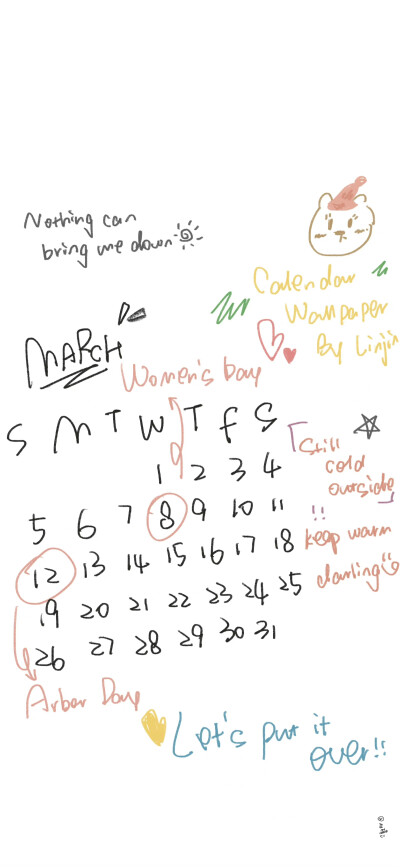 Nothing can
bring me down
Calendar
Wallpaper
By Linjin
MARCH
Women's Day
S M T W T F S
1 2 3 4
5 6 7 8 9 10 11
12 13 14 15 16 17 18
19 20 21 22 23 24 25
26 27 28 29 30 31
Still
cold
outside
!!
keep warm
darling
Arbor Day
Let's put it
over!!